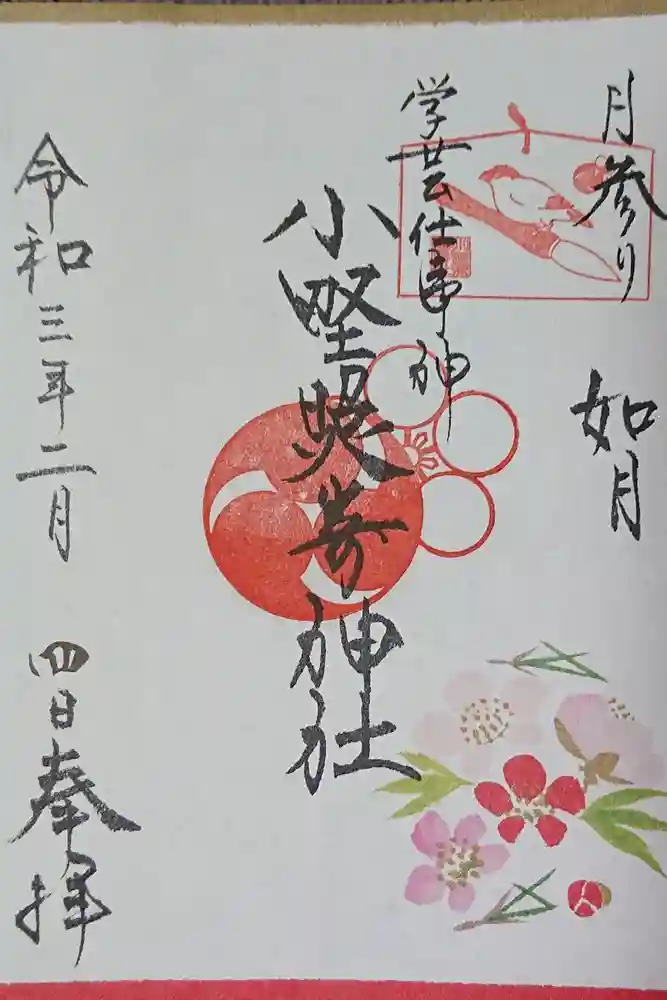 月参り
如月
学芸仕事神
小野照崎神社
令和三年二月 四日奉拝